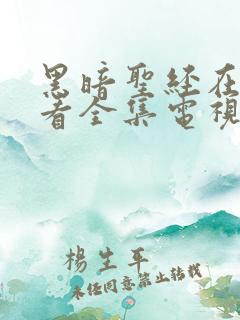 黑暗聖經在
看全集電視
楊生平
未经同意禁止转载